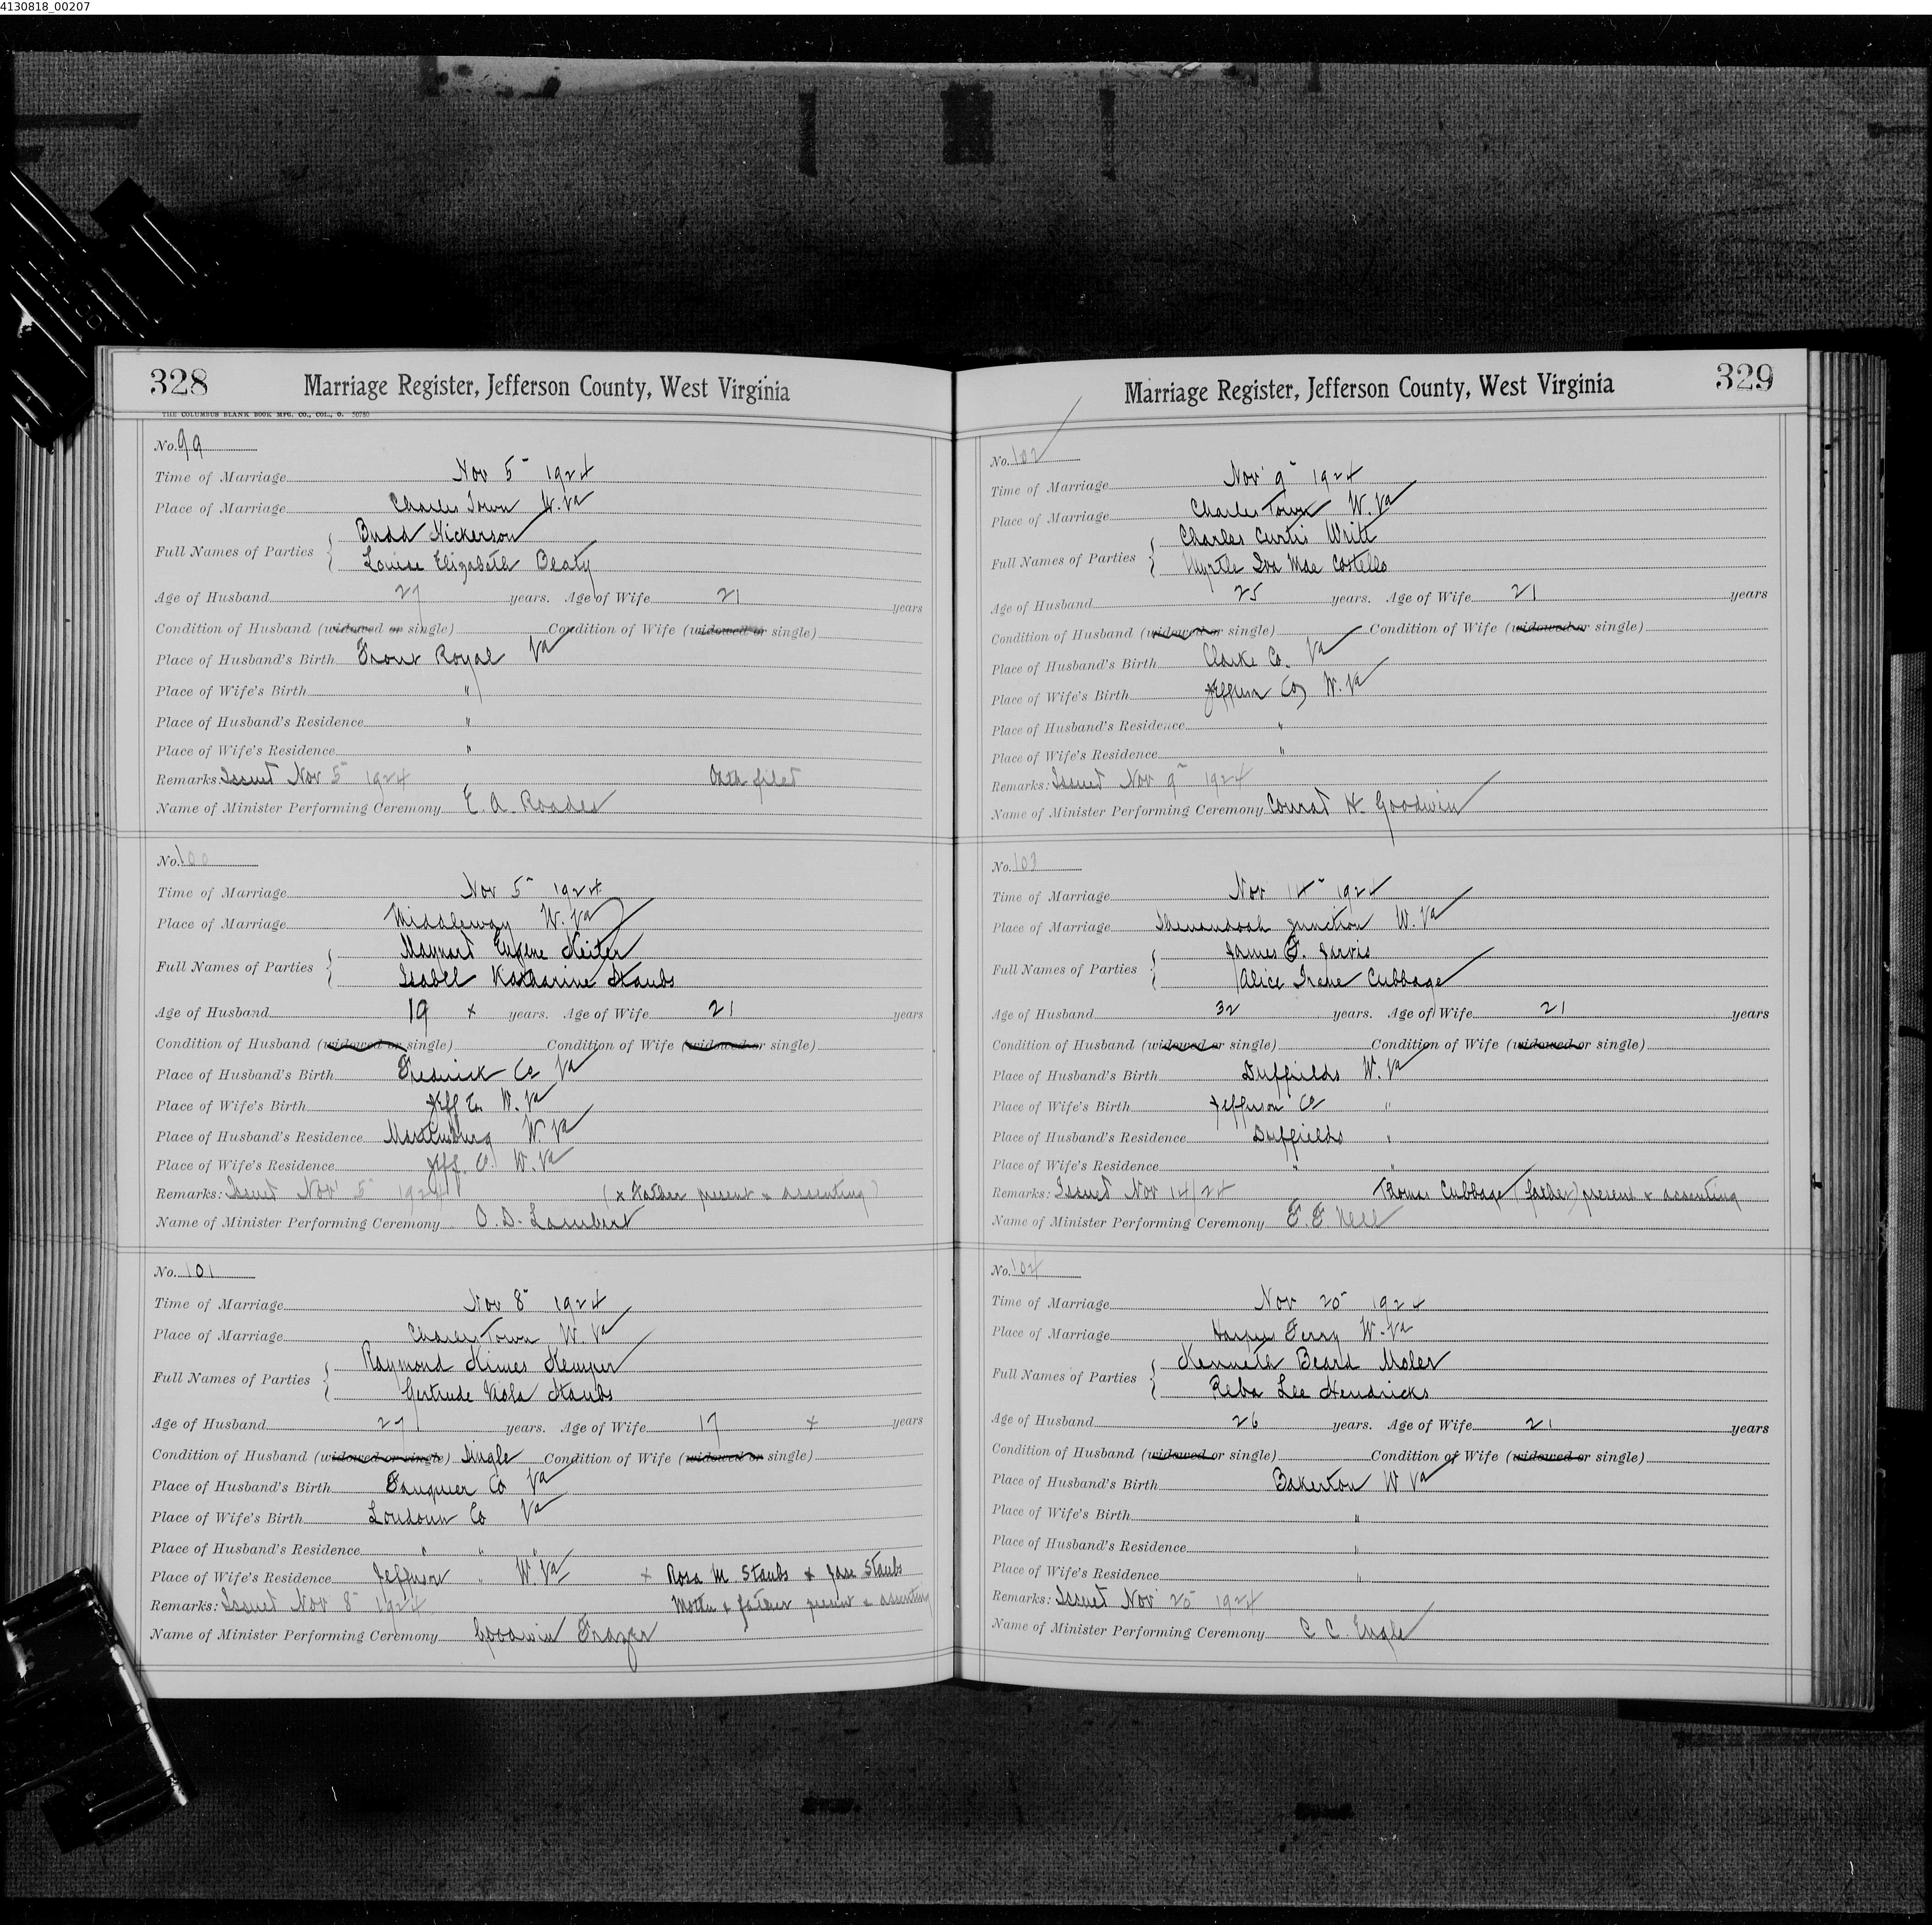 4130818_00207
328 Marriage Register, Jefferson County, West Virginia
THE COLUMBUS BLANK BOOK MFG. CO., COL., O. 50780
No. 99
Time of Marriage Nov 5" 1924
Place of Marriage Charles Town W. Va
Full Names of Parties Budd Nickerson
Louise Elizabeth Beaty
Age of Husband 27 years. Age of Wife 21 years
Condition of Husband (widowed or single) Condition of Wife (widowed or single)
Place of Husband's Birth Front Royal Va
Place of Wife's Birth "
Place of Husband's Residence "
Place of Wife's Residence "
Remarks: Issued Nov 5" 1924 Oath filed
Name of Minister Performing Ceremony E. A. Roades
No. 100
Time of Marriage Nov 5" 1924
Place of Marriage Middleway W. Va
Full Names of Parties Maynard Eugene Keiter
Isabell Katharine Staubs
Age of Husband 19 x years. Age of Wife 21 years
Condition of Husband (widowed or single) Condition of Wife (widowed or single)
Place of Husband's Birth Fredrick Co Va
Place of Wife's Birth Jeff Co. W. Va
Place of Husband's Residence Martinsburg W Va
Place of Wife's Residence Jeff. Co. W. Va
Remarks: Issued Nov 5" 1924 (x Father present & assenting)
Name of Minister Performing Ceremony O. D. Lambert
No. 101
Time of Marriage Nov 8" 1924
Place of Marriage Charles Town W. Va
Full Names of Parties Raymond Kimes Kemper
Gertrude Viola Staubs
Age of Husband 27 years. Age of Wife 17 x years
Condition of Husband (widowed or single) Single Condition of Wife (widowed or single)
Place of Husband's Birth Fauquier Co Va
Place of Wife's Birth Loudoun Co Va
Place of Husband's Residence " " "
Place of Wife's Residence Jefferson " W. Va x Rosa M Staubs & Jase Staubs
Remarks: Issued Nov 8" 1924 Mother & father present & assenting
Name of Minister Performing Ceremony Goodwin Frazer
Marriage Register, Jefferson County, West Virginia 329
No. 102
Time of Marriage Nov 9" 1924
Place of Marriage Charles Town W. Va
Full Names of Parties Charles Curtis Writt
Myrtle Iva Mae Costello
Age of Husband 25 years. Age of Wife 21 years
Condition of Husband (widowed or single) Condition of Wife (widowed or single)
Place of Husband's Birth Clarke Co. Va
Place of Wife's Birth Jefferson Co W. Va
Place of Husband's Residence "
Place of Wife's Residence "
Remarks: Issued Nov 9" 1924
Name of Minister Performing Ceremony Conrad H. Goodwin
No. 103
Time of Marriage Nov 14" 1924
Place of Marriage Shenandoah Junction W. Va
Full Names of Parties James F. Jarvis
Alice Irene Cubbage
Age of Husband 32 years. Age of Wife 21 years
Condition of Husband (widowed or single) Condition of Wife (widowed or single)
Place of Husband's Birth Duffields W. Va
Place of Wife's Birth Jefferson Co "
Place of Husband's Residence Duffields "
Place of Wife's Residence " "
Remarks: Issued Nov 14/24 Thomas Cubbage (father) present & assenting
Name of Minister Performing Ceremony F. F. Neel
No. 104
Time of Marriage Nov 25 1924
Place of Marriage Harpers Ferry W. Va
Full Names of Parties Kenneth Beard Moler
Reba Lee Hendricks
Age of Husband 26 years. Age of Wife 21 years
Condition of Husband (widowed or single) Condition of Wife (widowed or single)
Place of Husband's Birth Bakerton W Va
Place of Wife's Birth "
Place of Husband's Residence "
Place of Wife's Residence "
Remarks: Issued Nov 25 1924
Name of Minister Performing Ceremony C C. Engle